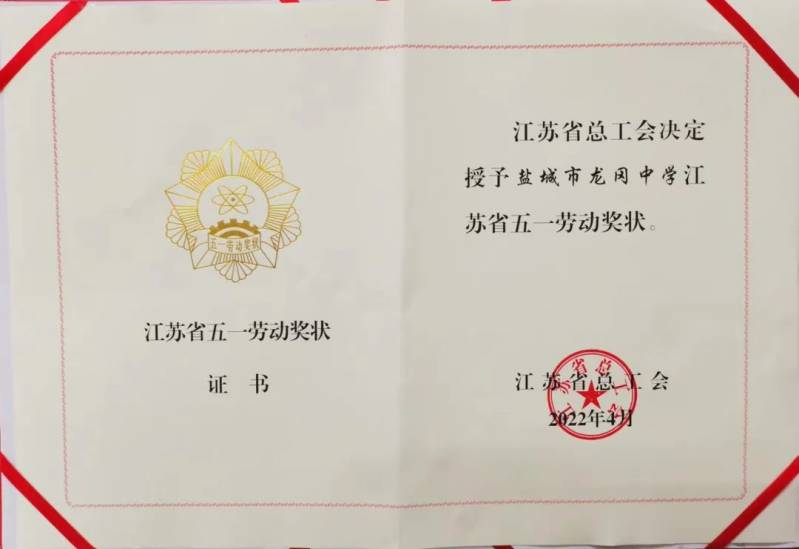 五一劳动奖状
江苏省五一劳动奖状
证书
江苏省总工会决定
授予盐城市龙冈中学江
苏省五一劳动奖状。
江苏省总工会
2022年4月
江苏省总工会